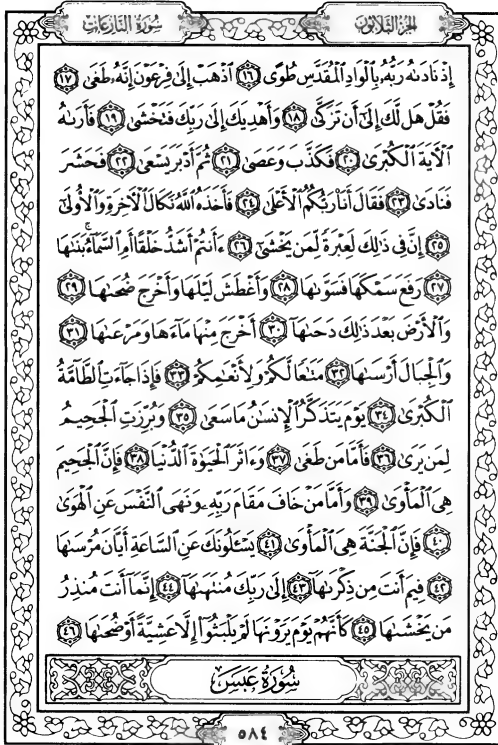 سُورَةُ النَّازِعَاتِ الجُزْءُ الثَّلَاثُونَ
إِذْ نَادَىٰهُ رَبُّهُۥ بِٱلْوَادِ ٱلْمُقَدَّسِ طُوًى ١٦ ٱذْهَبْ إِلَىٰ فِرْعَوْنَ إِنَّهُۥ طَغَىٰ ١٧
فَقُلْ هَل لَّكَ إِلَىٰٓ أَن تَزَكَّىٰ ١٨ وَأَهْدِيَكَ إِلَىٰ رَبِّكَ فَتَخْشَىٰ ١٩ فَأَرَىٰهُ
ٱلْـَٔايَةَ ٱلْكُبْرَىٰ ٢٠ فَكَذَّبَ وَعَصَىٰ ٢١ ثُمَّ أَدْبَرَ يَسْعَىٰ ٢٢ فَحَشَرَ
فَنَادَىٰ ٢٣ فَقَالَ أَنَا۠ رَبُّكُمُ ٱلْأَعْلَىٰ ٢٤ فَأَخَذَهُ ٱللَّهُ نَكَالَ ٱلْـَٔاخِرَةِ وَٱلْأُولَىٰٓ
٢٥ إِنَّ فِى ذَٰلِكَ لَعِبْرَةً لِّمَن يَخْشَىٰٓ ٢٦ ءَأَنتُمْ أَشَدُّ خَلْقًا أَمِ ٱلسَّمَآءُ ۚ بَنَىٰهَا
٢٧ رَفَعَ سَمْكَهَا فَسَوَّىٰهَا ٢٨ وَأَغْطَشَ لَيْلَهَا وَأَخْرَجَ ضُحَىٰهَا ٢٩
وَٱلْأَرْضَ بَعْدَ ذَٰلِكَ دَحَىٰهَآ ٣٠ أَخْرَجَ مِنْهَا مَآءَهَا وَمَرْعَىٰهَا ٣١
وَٱلْجِبَالَ أَرْسَىٰهَا ٣٢ مَتَٰعًا لَّكُمْ وَلِأَنْعَٰمِكُمْ ٣٣ فَإِذَا جَآءَتِ ٱلطَّآمَّةُ
ٱلْكُبْرَىٰ ٣٤ يَوْمَ يَتَذَكَّرُ ٱلْإِنسَٰنُ مَا سَعَىٰ ٣٥ وَبُرِّزَتِ ٱلْجَحِيمُ
لِمَن يَرَىٰ ٣٦ فَأَمَّا مَن طَغَىٰ ٣٧ وَءَاثَرَ ٱلْحَيَوٰةَ ٱلدُّنْيَا ٣٨ فَإِنَّ ٱلْجَحِيمَ
هِىَ ٱلْمَأْوَىٰ ٣٩ وَأَمَّا مَنْ خَافَ مَقَامَ رَبِّهِۦ وَنَهَى ٱلنَّفْسَ عَنِ ٱلْهَوَىٰ
٤٠ فَإِنَّ ٱلْجَنَّةَ هِىَ ٱلْمَأْوَىٰ ٤١ يَسْـَٔلُونَكَ عَنِ ٱلسَّاعَةِ أَيَّانَ مُرْسَىٰهَا
٤٢ فِيمَ أَنتَ مِن ذِكْرَىٰهَآ ٤٣ إِلَىٰ رَبِّكَ مُنتَهَىٰهَآ ٤٤ إِنَّمَآ أَنتَ مُنذِرُ
مَن يَخْشَىٰهَا ٤٥ كَأَنَّهُمْ يَوْمَ يَرَوْنَهَا لَمْ يَلْبَثُوٓا۟ إِلَّا عَشِيَّةً أَوْ ضُحَىٰهَا ٤٦
سُورَةُ عَبَسَ
٥٨٤